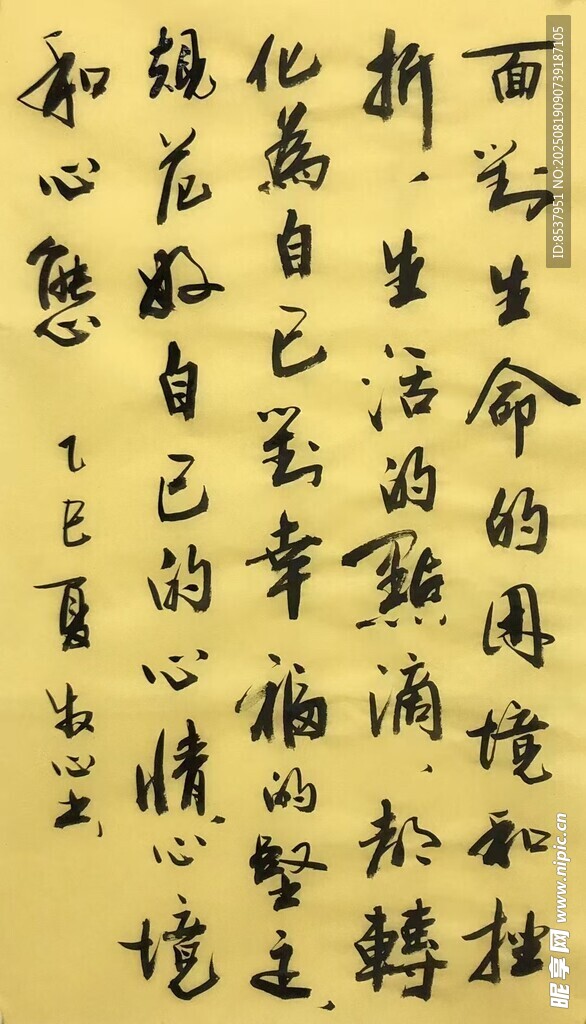 面對生命的困境和挫
折、生活的點滴、都轉
化為自己對幸福的堅主、
規范好自己的心情、心境
和心態
乙巳夏牧心书
ID:8537951 NO:20250819090739187105
昵享网 www.nipic.cn